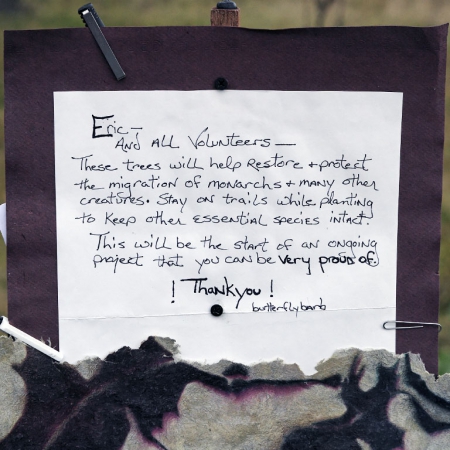 Eric -
And All Volunteers -
These trees will help Restore + protect
the migration of monarchs + many other
creatures. Stay on trails while planting
to keep other essential species intact.
This will be the start of an ongoing
project that you can be very proud of.
! Thankyou !
butterflybarb